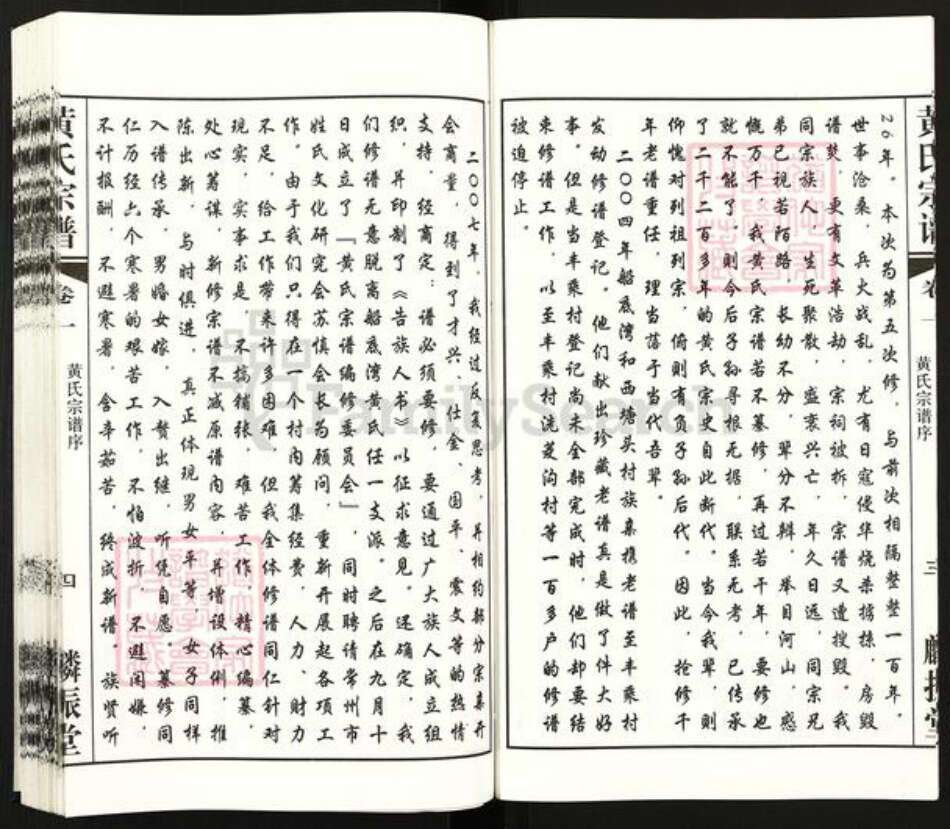 黄氏宗谱
卷一
黄氏宗谱序
三
麟振堂
26年。本次为第五次修,与前次相隔整整一百年。
世事沧桑,兵火战乱,尤有日寇侵华烧杀掳掠,房毁
谱焚,更有文革浩劫,宗祠被拆,宗谱又遭搜毁。我
同宗族人,生死聚散,盛衰兴亡,年久日远,同宗兄
弟已视若陌路,长幼不分,辈分不辩,举目河山,感
慨万千,我黄氏宗谱若不纂修,再过若干年,要修也
就不能了,则今后子孙寻根无据,联系无考,已传承
了二千二百多年的黄氏宗史自此断代。当今我辈,则
仰愧对列祖列宗,俯则有负子孙后代。因此,抢修千
年老谱重任,理当落于当代吾辈。
二〇〇四年船底湾和西塘头村族亲携老谱至丰乘村
发动修谱登记。他们献出珍藏老谱真是做了件大好
事。但是当丰乘村登记尚未全部完成时,他们却要结
束修谱工作,以至丰乘村洗菱沟村等一百多户的修谱
被迫停止。
二〇〇七年,我经过反复思考,并相约部分宗亲开
会商量,得到了才兴、仕金、国平、震文等的热情
支持,经商定:谱必须要修,要通过广大族人成立组
织,并印制了《告族人书》以征求意见。还确定,我
们修谱无意脱离船底湾黄氏任一支派。之后在九月十
日成立了「黄氏宗谱编修委员会」,同时聘请常州市
姓氏文化研究会苏慎会长为顾问,重新开展起各项工
作。由于我们只得在一个村内筹集经费,人力、财力
不足,给工作带来许多困难,但我全体修谱同仁针对
现实,实事求是,不搞铺张,难苦工作,精心编纂,
处心筹谋,新修宗谱不减原谱内容,并增设体例,推
陈出新,与时俱进,真正体现男女平等,女子同样
入谱传承,男婚女嫁,入赘出继,听凭自愿。纂修同
仁历经六个寒暑的艰苦工作,不怕波折,不避闲嫌,
不计报酬,不避寒暑,含辛茹苦,终成新谱,族贤听
黄氏宗谱
卷一
黄氏宗谱序
四
麟振堂
FamilySearch